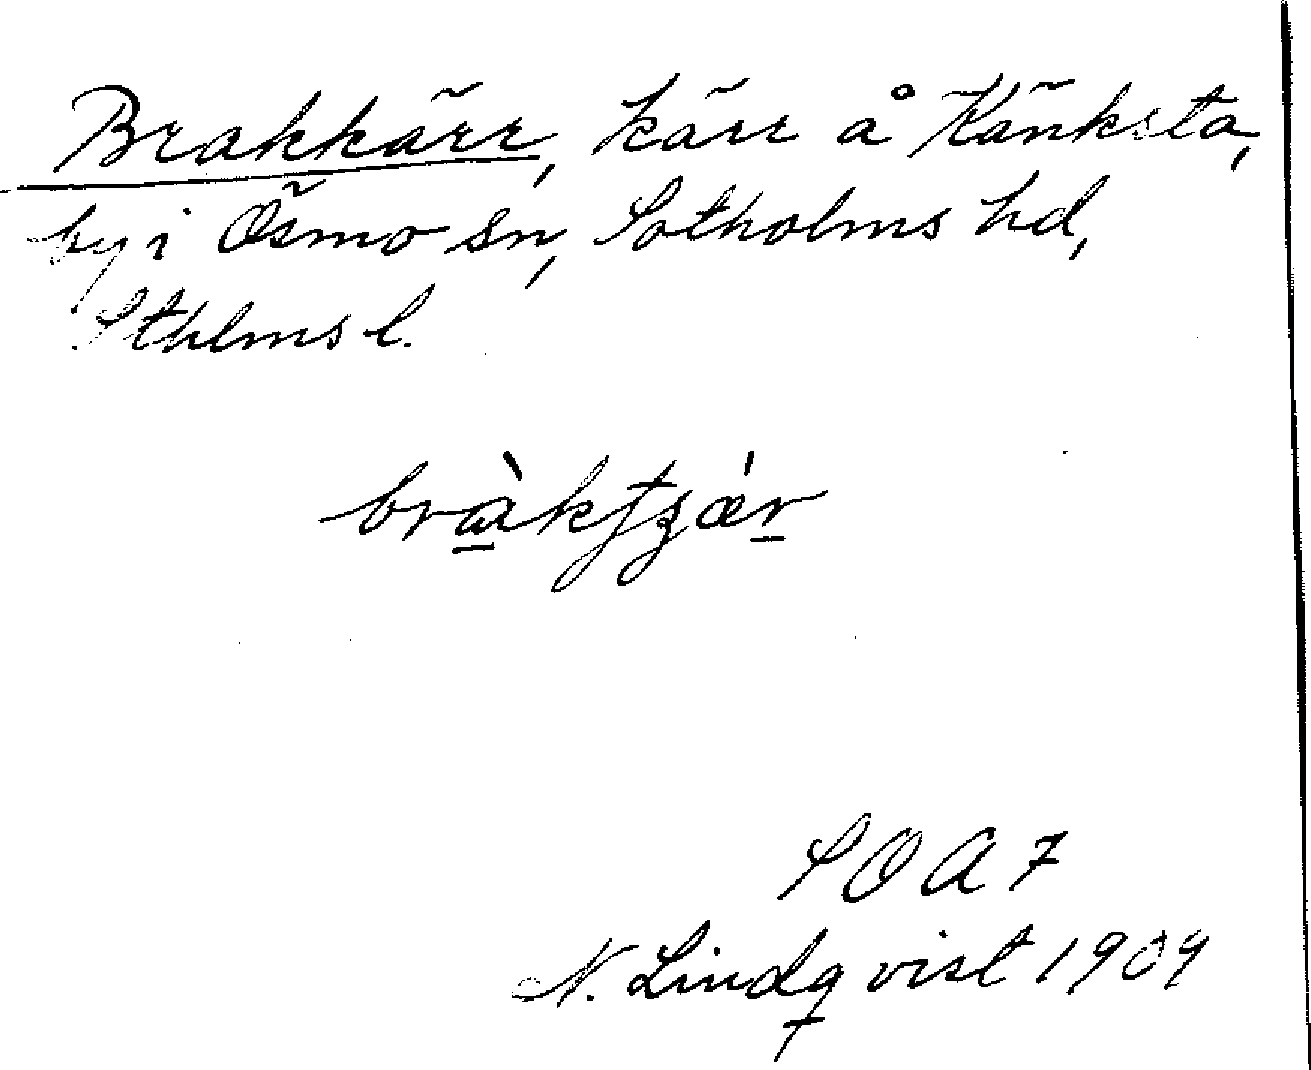 Brakkärr, kärr å Känksta,
by i Ösmo sn, Sotholms hd,
Sthlms l.
SOA 7
N. Lindqvist 1909